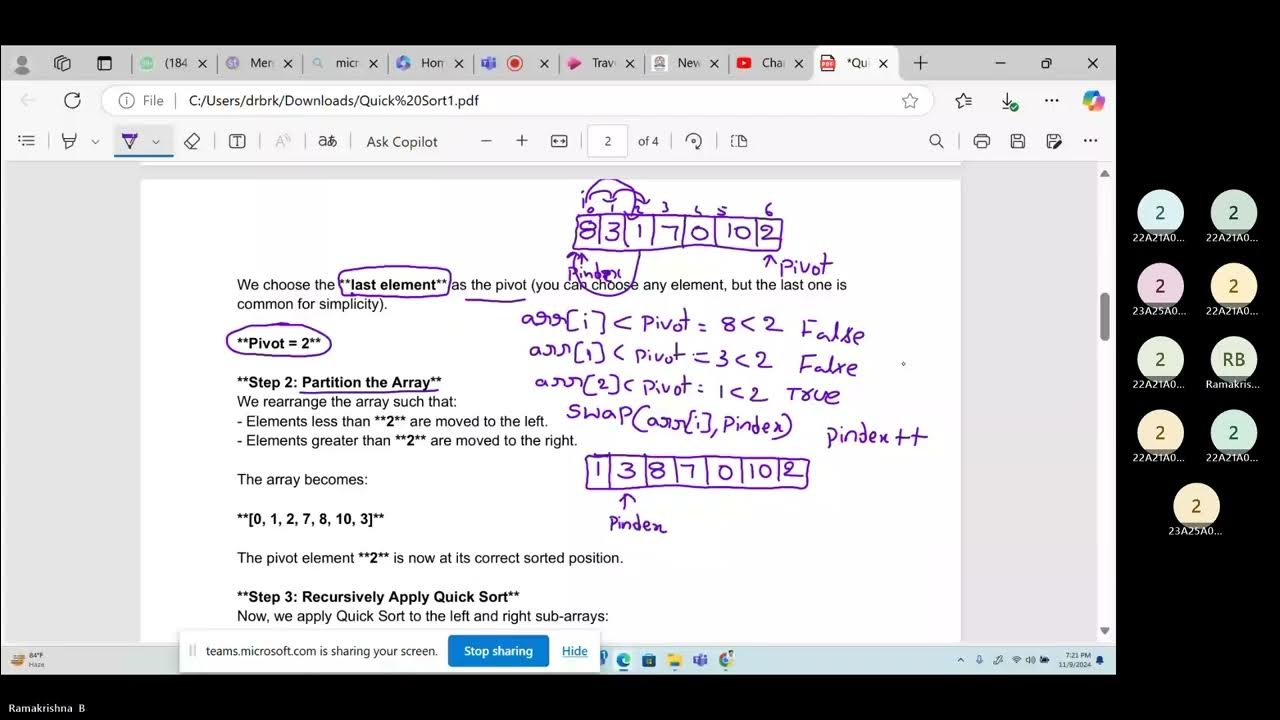 (184
Mer
micr
Hom
Trav
New
Cha
*Qui
File
C:/Users/drbrk/Downloads/Quick%20Sort1.pdf
Ask Copilot
2
of 4
i
0 1 2 3 4 5 6
8 3 1 7 0 10 2
Pindex
Pivot
We choose the **last element** as the pivot (you can choose any element, but the last one is
common for simplicity).
arr[i] < Pivot = 8 < 2 False
**Pivot = 2**
arr[1] < Pivot = 3 < 2 False
**Step 2: Partition the Array**
arr[2] < Pivot = 1 < 2 True
We rearrange the array such that:
- Elements less than **2** are moved to the left.
swap(arr[i], Pindex)
- Elements greater than **2** are moved to the right.
pindex++
1 3 8 7 0 10 2
The array becomes:
**[0, 1, 2, 7, 8, 10, 3]**
Pindex
The pivot element **2** is now at its correct sorted position.
**Step 3: Recursively Apply Quick Sort**
Now, we apply Quick Sort to the left and right sub-arrays:
teams.microsoft.com is sharing your screen.
Stop sharing
Hide
84°F
Haze
7:21 PM
11/9/2024
2
22A21A0...
2
22A21A0...
2
23A25A0...
2
22A21A0...
2
22A21A0...
RB
Ramakris...
2
22A21A0...
2
22A21A0...
2
23A25A0...
Ramakrishna B